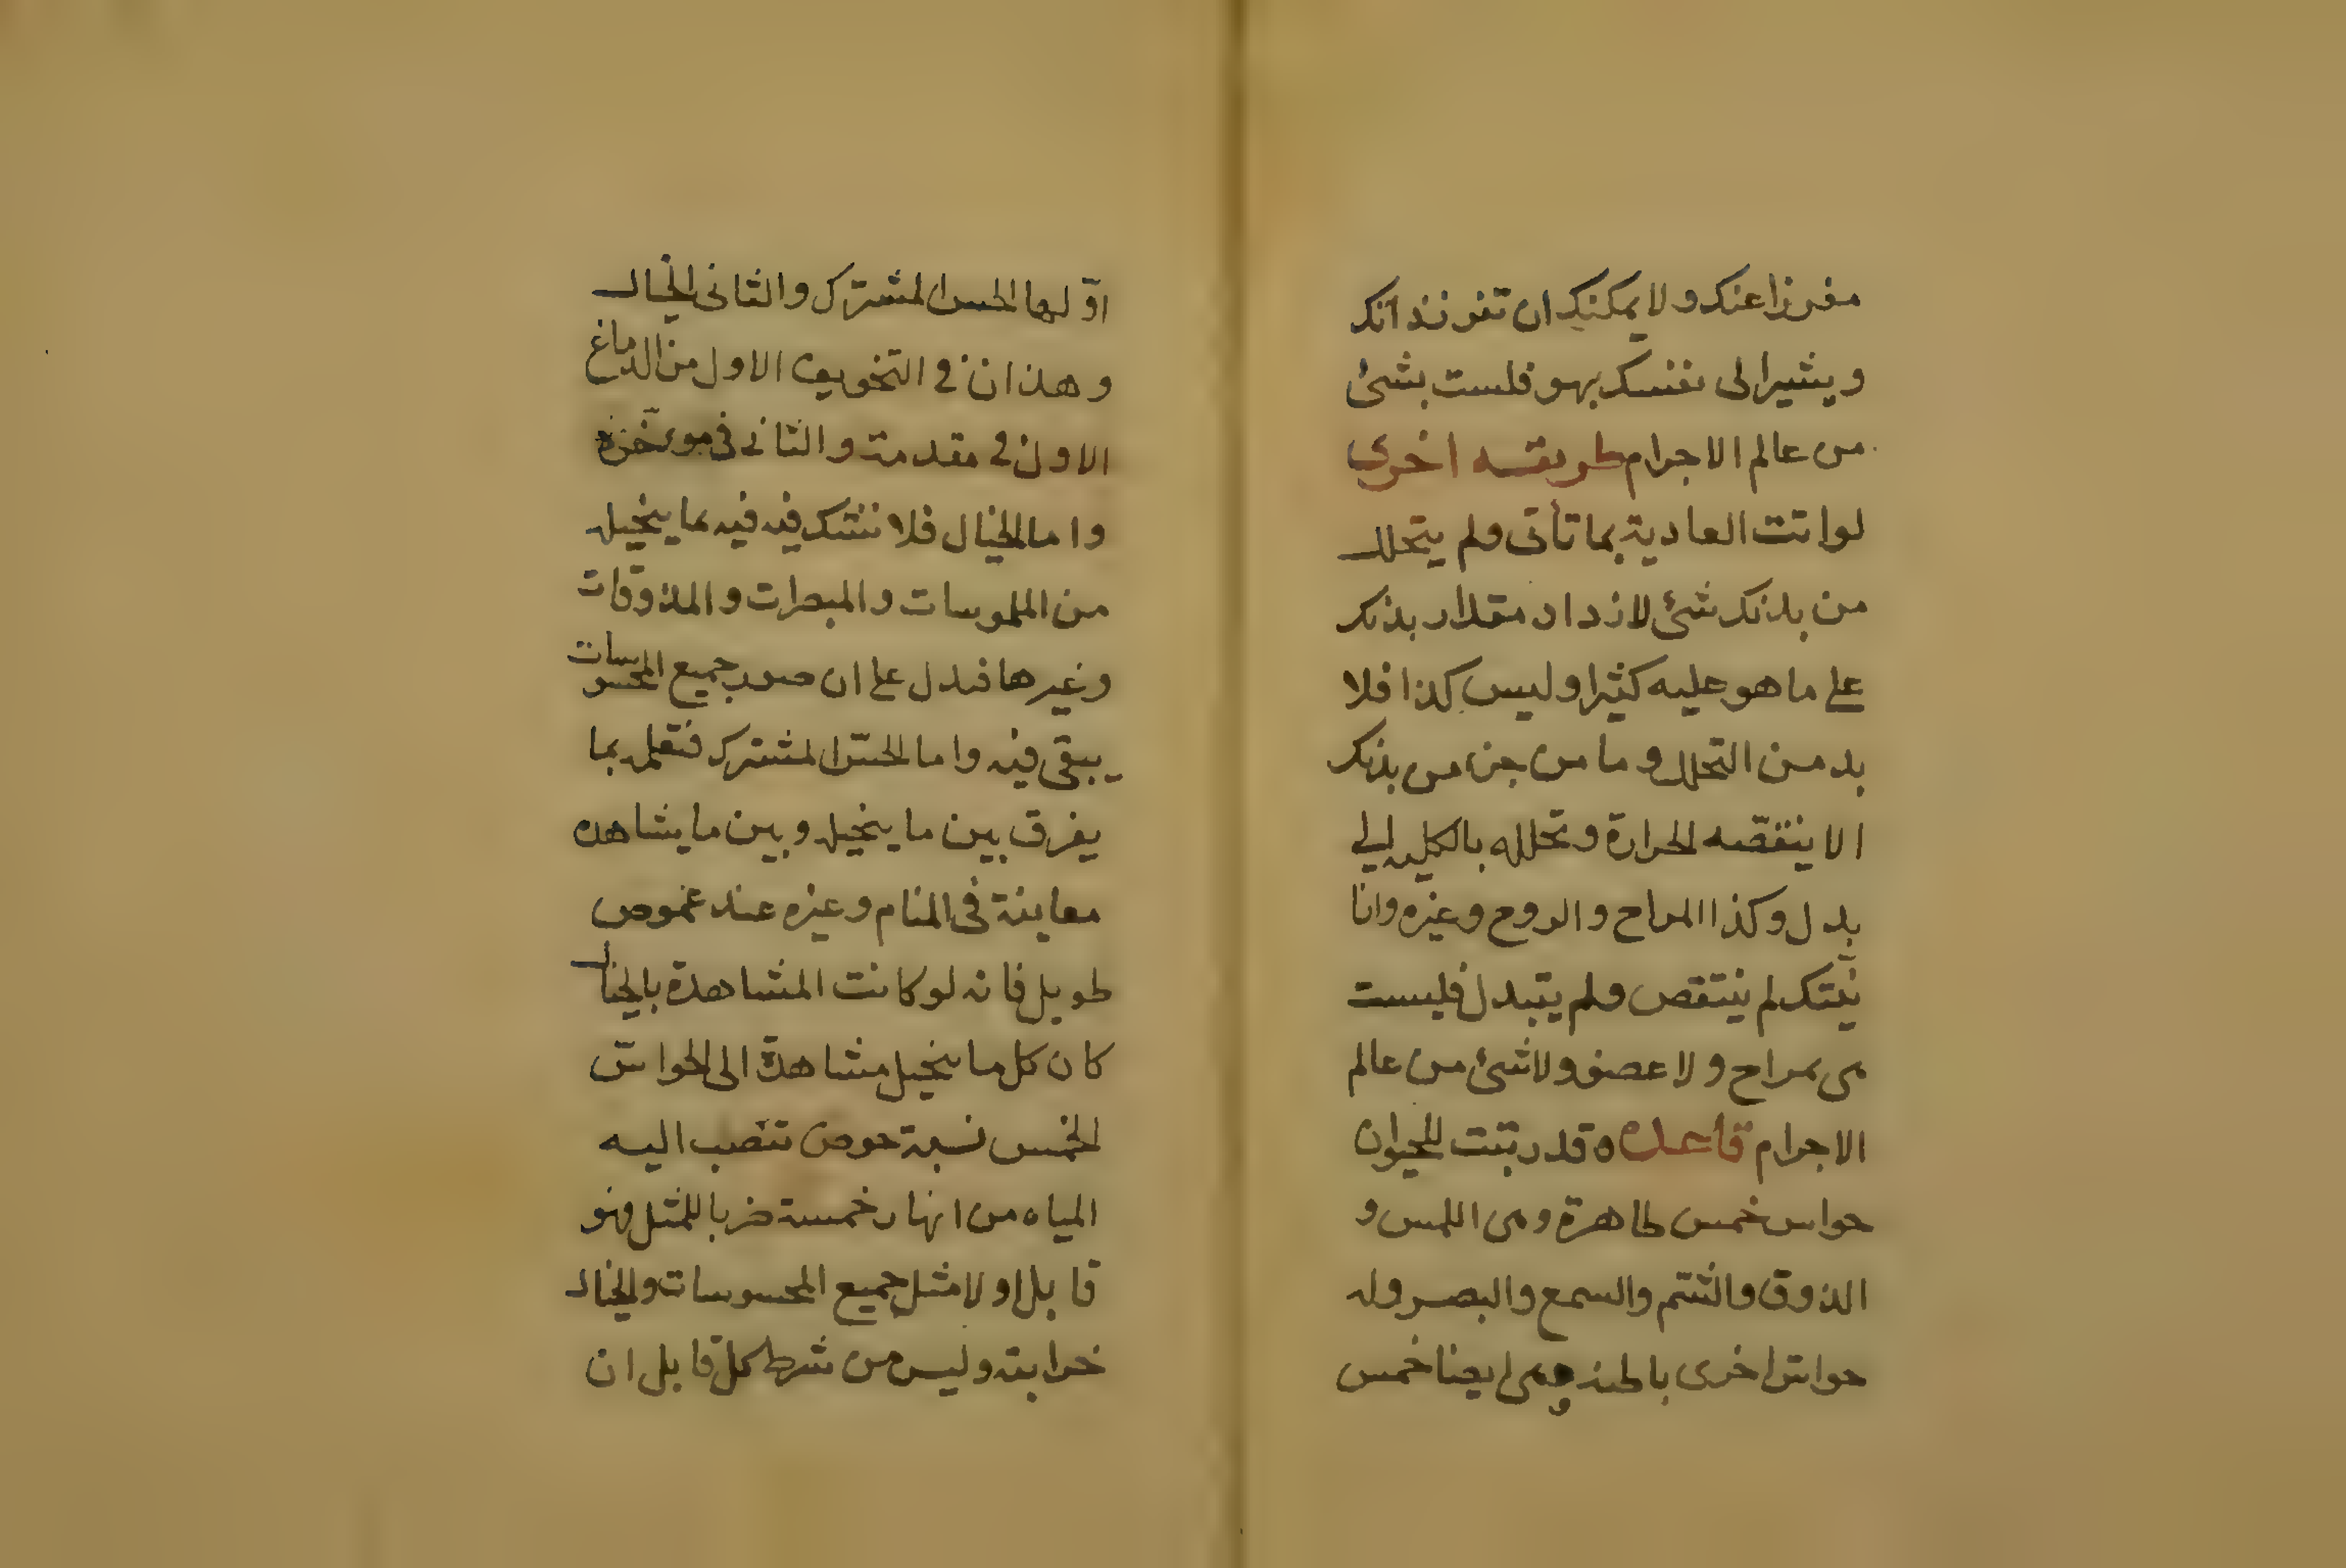 مفرزا عنك ولا يمكنك ان تفرز ذاتك
ويشير الى نفسك بهو فلست بشئ
من عالم الاجرام طريقه اخرى
لواتت العادية بما تأتى ولم يتحلل
من بدنك شئ لازداد مقدار بدنك
على ما هو عليه كثيرا وليس كذا فلا
بد من التحلل وما من جزء من بدنك
الا ينقصه الحرارة وتحلله بالكليه الى
بدل وكذا المزاح والروح وغيره وانا
نيّتك لم ينتقص ولم يتبدل فليست
هى بمزاح ولا عضو ولا شئ من عالم
الاجرام قاعده ه قد ثبتت للحيوان
حواس خمس ظاهرة وهى اللمس و
الذوق والشم والسمع والبصر وله
حواس اخرى باطنه وهى ايضا خمس
اوّلها الحس المشترك والثانى الخيال
وهذان فى التخويف الاول من الدماغ
الاول فى مقدمته والثانى فى مؤخره
واما الخيال فلا نشك فيه فيه بما يتخيل
من الملموسات والمبصرات والمذوقات
وغيرها فدل على ان صور جميع المحسوسات
يبقى فيه واما الحسّ المشترك فتعلمه بما
يفرق بين ما يتخيل وبين ما يشاهده
معاينة فى المنام وغيره عند غموض
طويل فانه لو كانت المشاهدة بالخيال
كان كل ما يتخيل مشاهدة الى الحواس
الخمس نسبة حوض تنصب اليه
المياه من انهار خمسة ضربا للمثل فهو
قابل اولا مثل جميع المحسوسات والخيال
خزانته وليس من شرط كل قابل ان